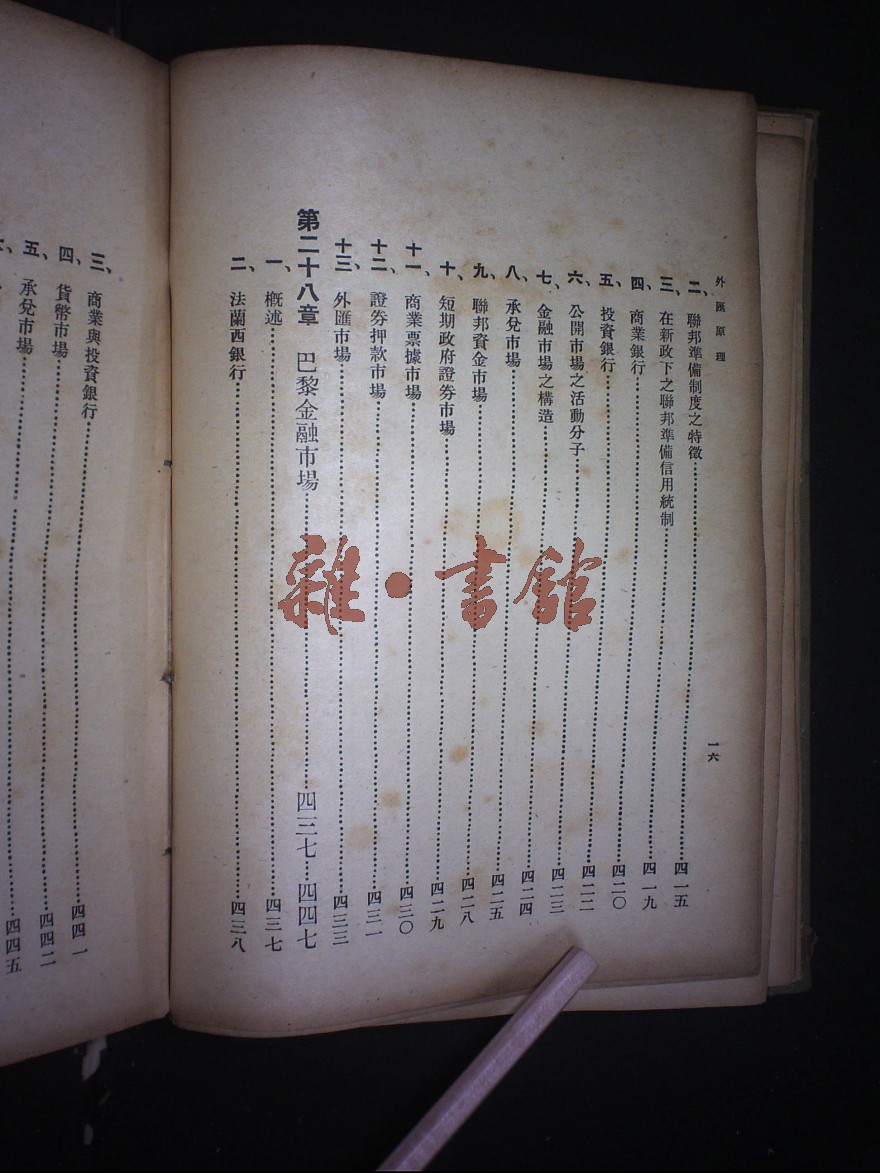 外匯原理 一六
二、聯邦準備制度之特徵……四一五
三、在新政下之聯邦準備信用統制……四一九
四、商業銀行……四二〇
五、投資銀行……四二二
六、公開市場之活動分子……四二三
七、金融市場之構造……四二四
八、承兌市場……四二五
九、聯邦資金市場……四二八
十、短期政府證券市場……四二九
十一、商業票據市場……四三〇
十二、證券押款市場……四三一
十三、外匯市場……四三三
第二十八章 巴黎金融市場……四三七…四四七
一、概述……四三七
二、法蘭西銀行……四三八
三、商業與投資銀行……四四一
四、貨幣市場……四四二
五、承兌市場……四四五
雜·書館